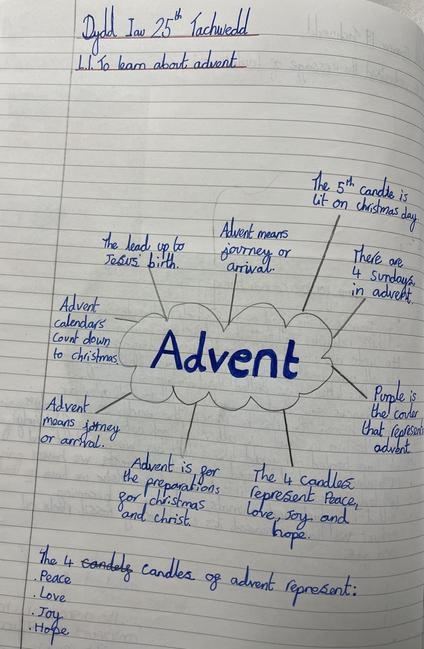 Dydd Iau 25th Tachwedd
L.I. To learn about advent
The 5th candle is
lit on christmas day
Advent means
journey or
arrival.
the lead up to
Jesus' birth.
There are
4 sundays
in advent.
Advent
calendars
count down
to christmas
Advent
Purple is
the color
that represents
advent
Advent
means jorney
or arrival.
Advent is for
the preparations
for christmas
and christ.
The 4 candles
represent Peace,
Love, Joy and
hope.
The 4 candels candles of advent represent:
. Peace
. Love
. Joy
. Hope